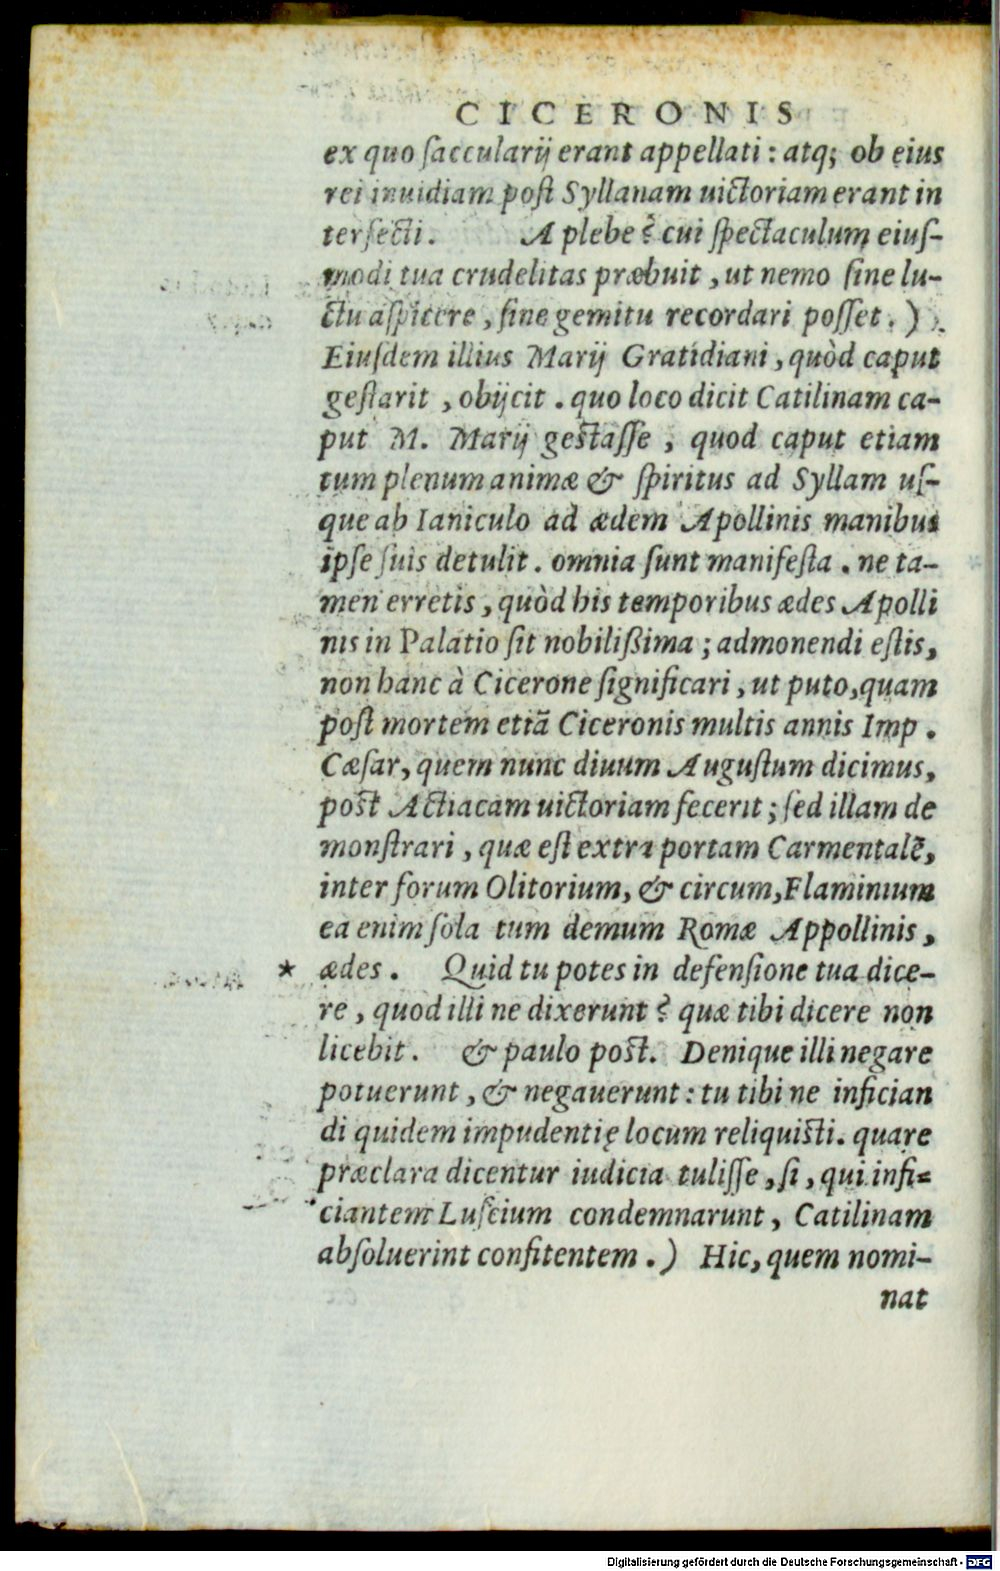 CICERONIS
ex quo ſaccularij erant appellati : atq; ob eius
rei inuidiam poſt Syllanam uictoriam erant in
terfecti. A plebe ? cui ſpectaculum eiuſ-
modi tua crudelitas præbuit , ut nemo ſine lu-
ctu aſpicere , ſine gemitu recordari poſſet . )
Eiuſdem illius Marij Gratidiani , quòd caput
geſtarit , obijcit . quo loco dicit Catilinam ca-
put M. Marij geſtaſſe , quod caput etiam
tum plenum animæ & ſpiritus ad Syllam uſ-
que ab Ianiculo ad ædem Apollinis manibus
ipſe ſuis detulit . omnia ſunt manifeſta . ne ta-
men erretis , quòd his temporibus ædes Apolli
nis in Palatio ſit nobilißima ; admonendi eſtis,
non hanc à Cicerone ſignificari , ut puto, quam
poſt mortem etiã Ciceronis multis annis Imp .
Cæſar, quem nunc diuum Auguſtum dicimus,
poſt Actiacam uictoriam fecerit ; ſed illam de
monſtrari , quæ eſt extra portam Carmentalẽ,
inter forum Olitorium, & circum, Flaminium
ea enim ſola tum demum Romæ Appollinis ,
★ ædes . Quid tu potes in defenſione tua dice-
re , quod illi ne dixerunt ? quæ tibi dicere non
licebit . & paulo poſt. Denique illi negare
potuerunt , & negauerunt : tu tibi ne infician
di quidem impudentię locum reliquiſti. quare
præclara dicentur iudicia tuliſſe , ſi , qui infi-
ciantem Luſcium condemnarunt , Catilinam
abſoluerint confitentem . ) Hic, quem nomi-
nat
Digitalisierung gefördert durch die Deutsche Forschungsgemeinschaft - DFG